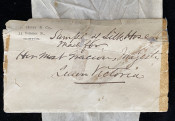 Sample of Silk Hose
made for
Her Most Gracious Majesty
Queen Victoria